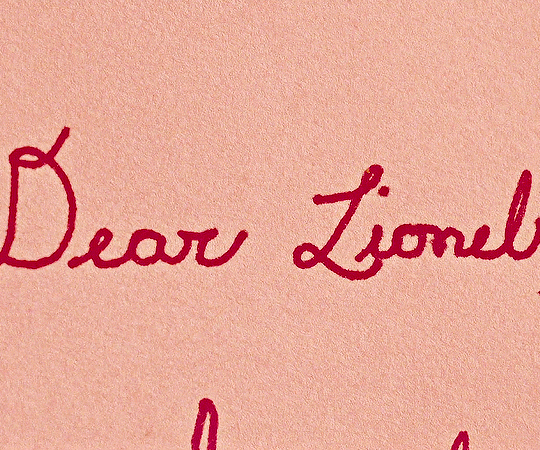 Dear Lionel,